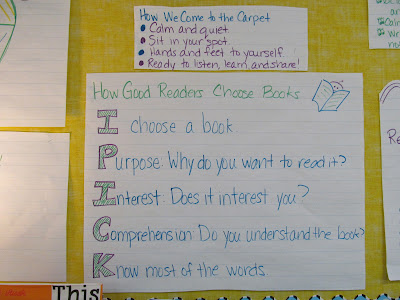 How We Come to the Carpet
Calm and quiet
Sit in your spot
Hands and feet to yourself
Ready to listen, learn, and share!
How Good Readers Choose Books
I choose a book
Purpose: Why do you want to read it?
Interest: Does it interest you?
Comprehension: Do you understand the book?
Know most of the words.
This